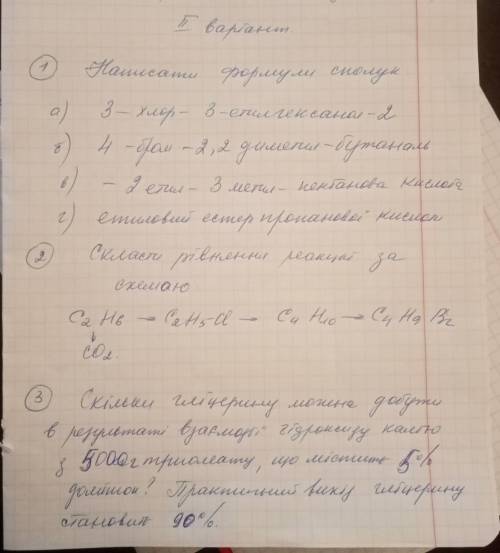 II варіант
① Написати формули сполук
а) 3 - хлор - 3 - етилгексанол - 2
б) 4 - бром - 2,2 диметил - бутаналь
в) - 2 етил - 3 метил - пентанова кислота
г) етиловий естер пропанової кислоти
② Скласти рівняння реакцій за
схемою
C2H6 → C2H5Cl → C4H10 → C4H9Br
↓
CO2.
③ Скільки гліцерину можна добути
в результаті взаємодії гідроксиду калію
з 5000г триолеату, що містить 5%
домішок? Практичний вихід гліцерину
становить 90%.